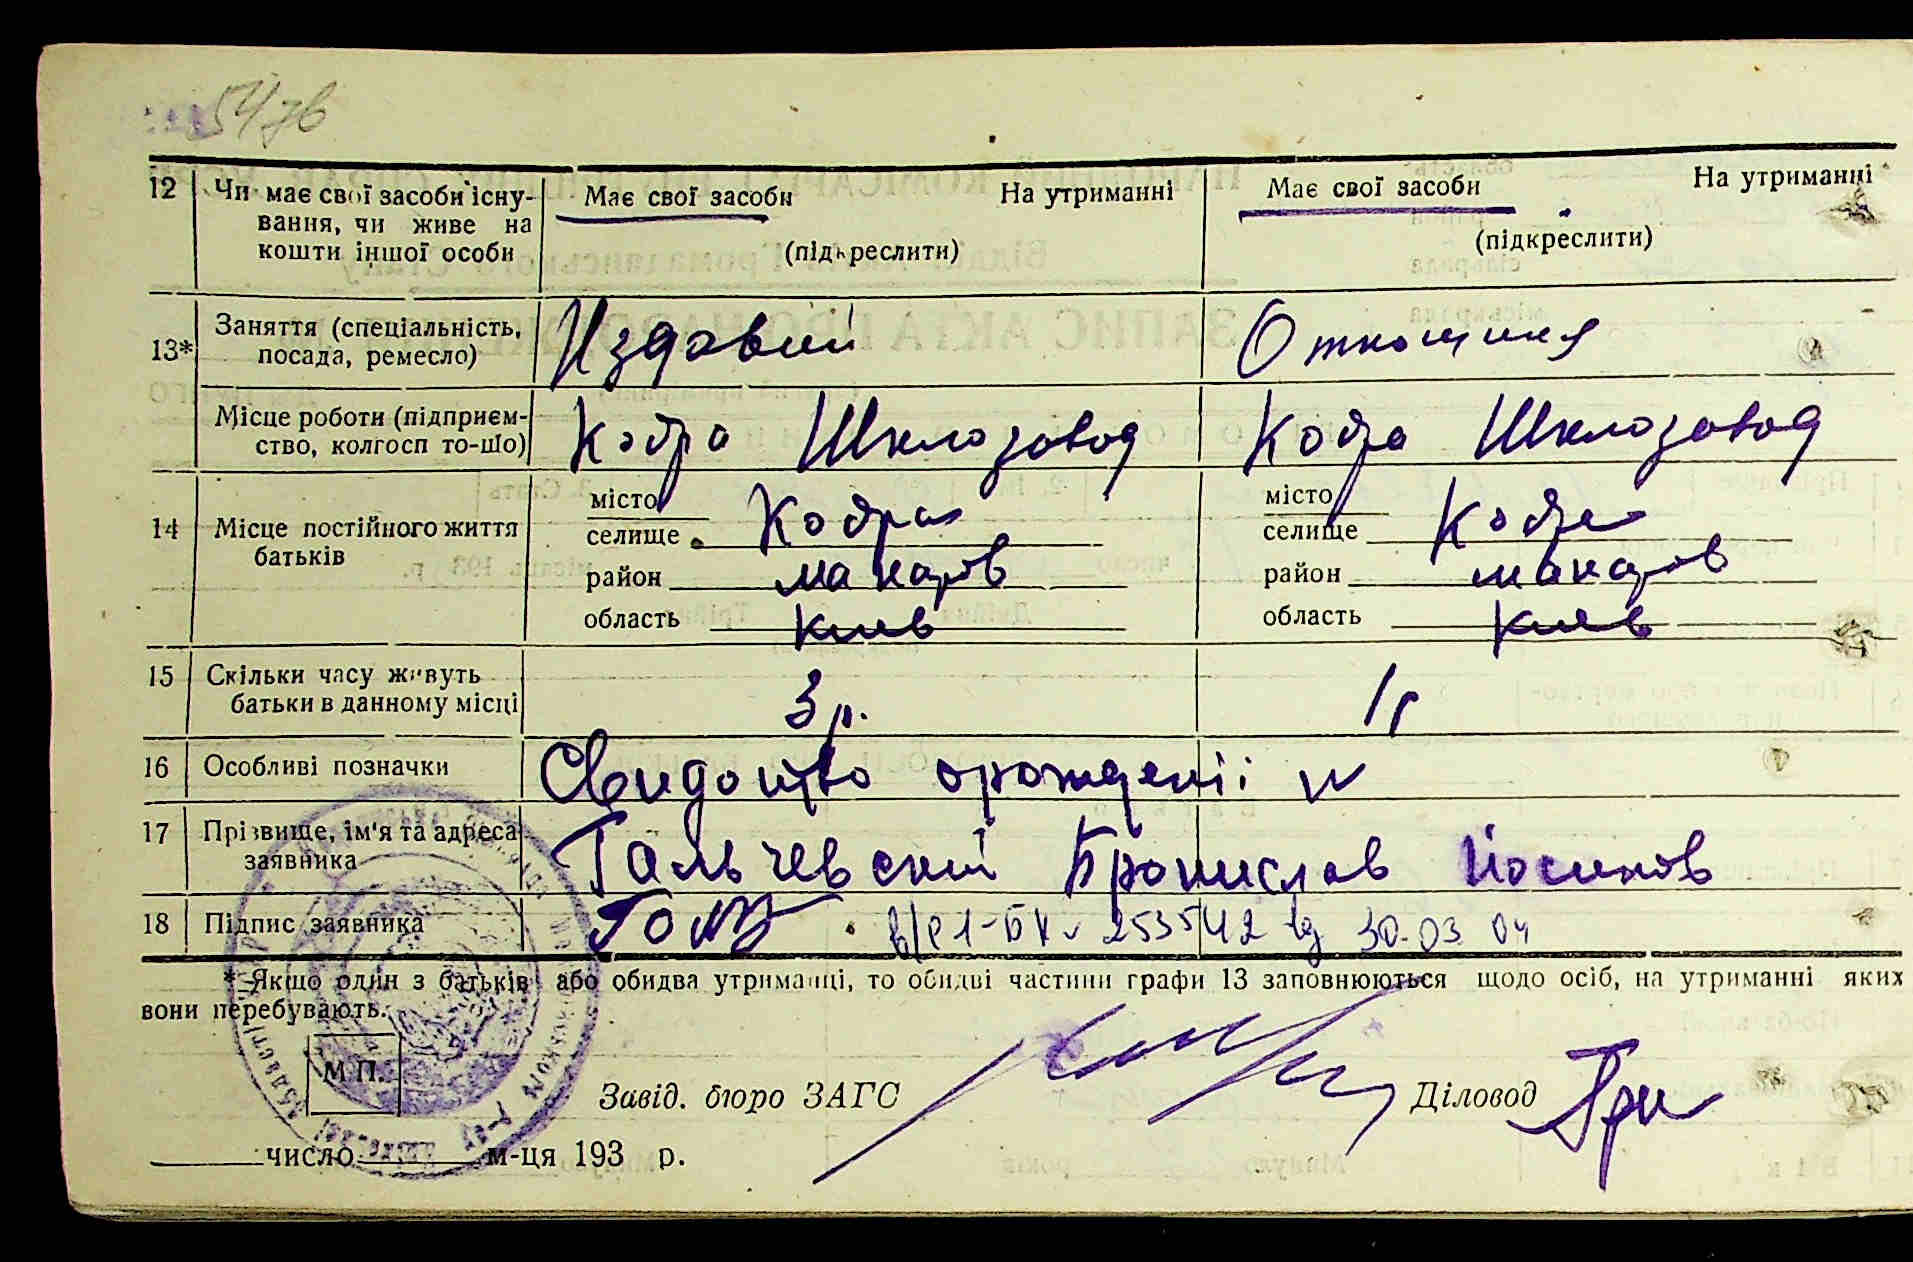 54 зв
12 Чи має свої засоби існу- Має свої засоби На утриманні Має свої засоби На утриманні
вання, чи живе на
кошти іншої особи (підкреслити) (підкреслити)
13* Заняття (спеціальність, посада, ремесло) Їздавий
Місце роботи (підприєм- Кодра Шклозавод Кодра Шклозавод
ство, колгосп то-що)
14 Місце постійного життя батьків
місто місто
селище Кодра селище Кодра
район макаров район макаров
область Киев область Киев
15 Скільки часу живуть 3 р. 1 г
батьки в данному місці
16 Особливі позначки Свидоцтво орождениі N
17 Прізвище, ім'я та адреса Гальчевский Бронислав Йосипов
заявника
18 Підпис заявника 1-БК № 253542 від 30.03.04
* Якщо один з батьків або обидва утриманці, то обидві частини графи 13 заповнюються щодо осіб, на утриманні яких
вони перебувають.
М П.
Завід. бюро ЗАГС Діловод
число м-ця 193 р.